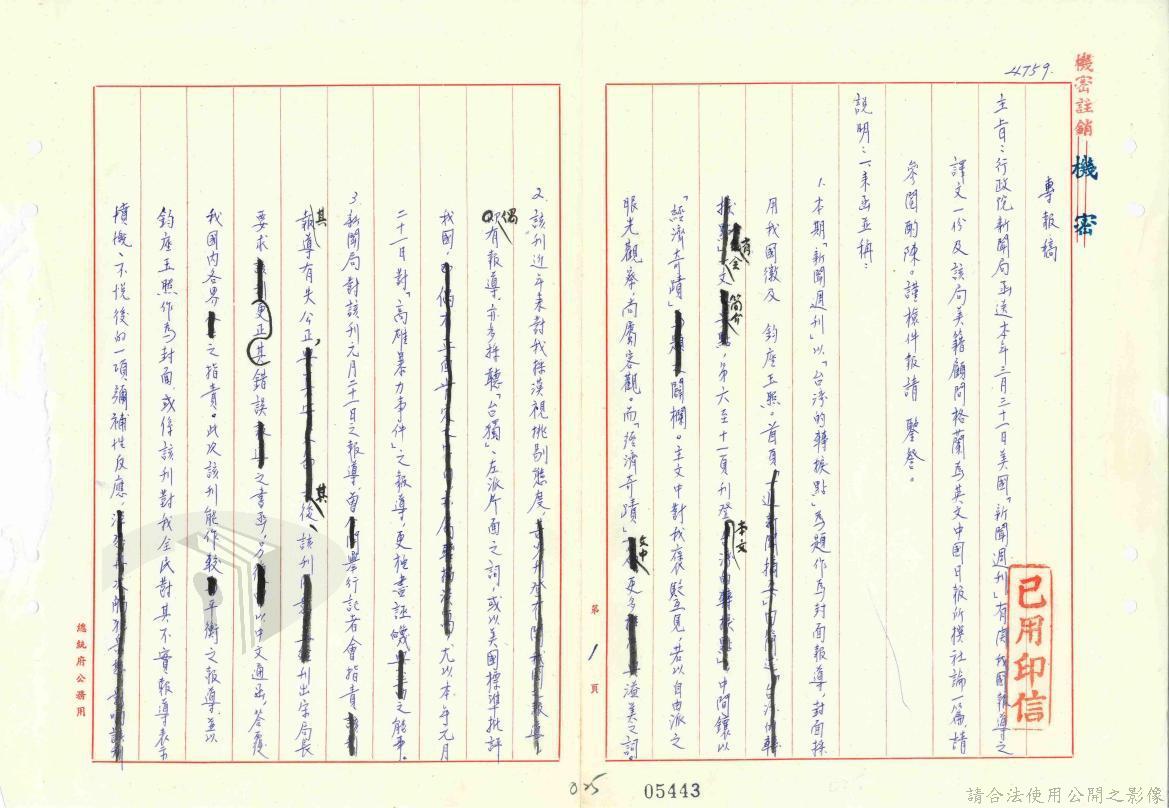 4759.
機密註銷
機密
專報稿
主旨：行政院新聞局函送本年三月三十一日美國「新聞週刊」有關我國報導之
譯文一份及該局美籍顧問格蘭為英文中國日報所撰社論一篇請
參閱酌陳。謹檢件報請 鑒詧。
說明：一、來函並稱：
1.本期「新聞週刊」以「台灣的轉捩點」為題作為封面報導，封面採
用我國徽及 鈞座玉照。首頁
有全文 簡介，第六至十一頁刊登 本文 中間鑲以
「經濟奇蹟」 闢欄。主文中對我褒貶互見，若以自由派之
眼光觀察，尚屬客觀。而「經濟奇蹟」文中更多 溢美之詞。
已用印信
第 1 頁
2.該刊近年來對我採漠視挑剔態度，
偶有報導，亦多採聽「台獨」、左派片面之詞，或以美國標準批評
我國， 尤以本年元月
二十一日對「高雄暴力事件」之報導，更極盡誣衊 之能事。
3.新聞局對該刊元月二十一日之報導，曾 舉行記者會指責
其報導有失公正， 其後、該刊 刊出宋局長
要求更正其錯誤 之書函，方 以中文通函，答覆
我國內各界 之指責。此次該刊能作較 平衡之報導，並以
鈞座玉照作為封面，或係該刊對我全民對其不實報導表示
憤慨、不悅後的一項彌補性反應，
總統府公務用
025
05443
請合法使用公開之影像